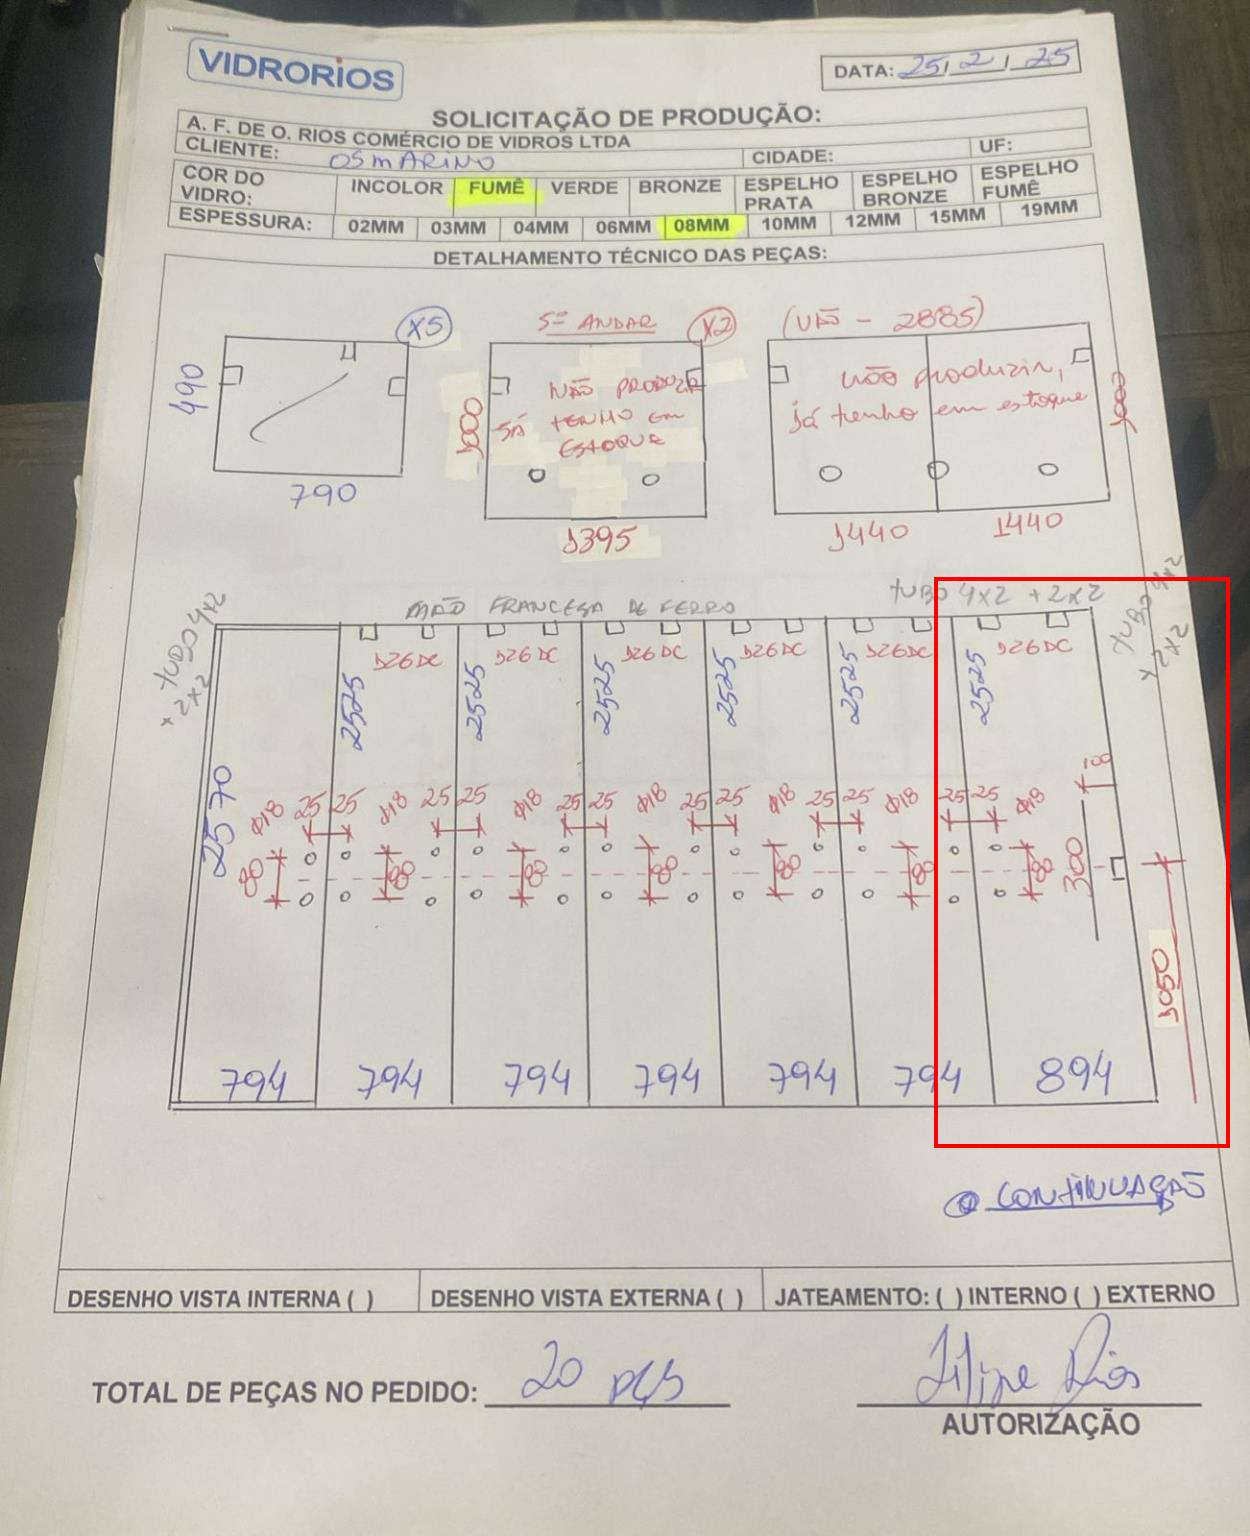 VIDRORIOS
DATA: 25/2/25
SOLICITAÇÃO DE PRODUÇÃO:
A. F. DE O. RIOS COMÉRCIO DE VIDROS LTDA
CLIENTE: OSMARINO CIDADE: UF:
COR DO VIDRO: INCOLOR FUMÊ VERDE BRONZE ESPELHO PRATA ESPELHO BRONZE ESPELHO FUMÊ
ESPESSURA: 02MM 03MM 04MM 06MM 08MM 10MM 12MM 15MM 19MM
DETALHAMENTO TÉCNICO DAS PEÇAS:
X5
490
790
5º ANDAR X2
NÃO PRODUZIR
JÁ TENHO EM
ESTOQUE
1000
1395
(VÃO - 2885)
não produzir,
já tenho em estoque
1000
1440 1440
MÃO FRANCESA DE FERRO
TUBO 4x2 + 2x2
TUBO 4x2
+ 2x2
TUBO 4x2
+ 2x2
126DC 126DC 126DC 126DC 126DC 126DC
2525 2525 2525 2525 2525 2525
2570
100
Ø18 25 25 Ø18 25 25 Ø18 25 25 Ø18 25 25 Ø18 25 25 Ø18 25 25 Ø18
80 80 80 80 80 80 80
300
1050
794 794 794 794 794 794 894
CONTINUAÇÃO
DESENHO VISTA INTERNA ( ) DESENHO VISTA EXTERNA ( ) JATEAMENTO: ( ) INTERNO ( ) EXTERNO
TOTAL DE PEÇAS NO PEDIDO: 20 pçs
Filipe Rios
AUTORIZAÇÃO